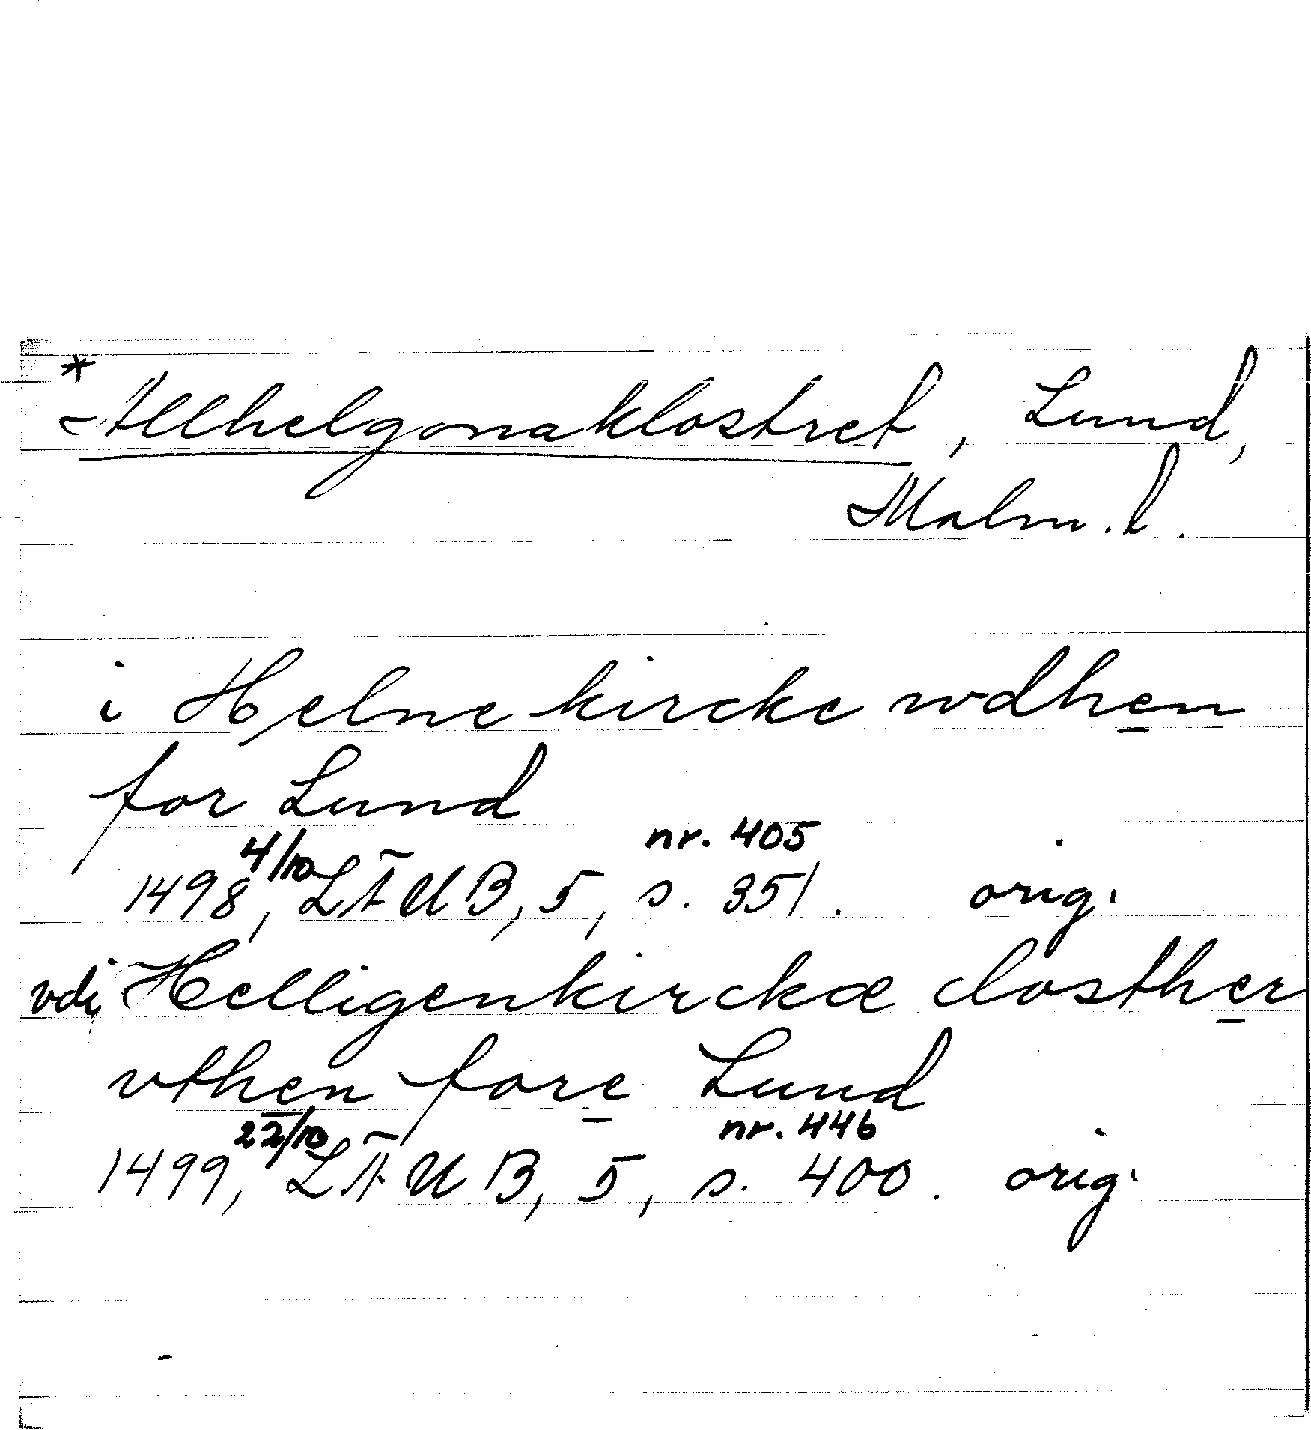 *
Allhelgonaklostret, Lund,
Malm. l.
i Helnekircke wdhen
for Lund
4/10 nr. 405
1498, LÄUB, 5, s. 351. orig.
vdi Helligenkirckæ closther
vthen fore Lund
22/10 nr. 446
1499, LÄUB, 5, s. 400. orig.